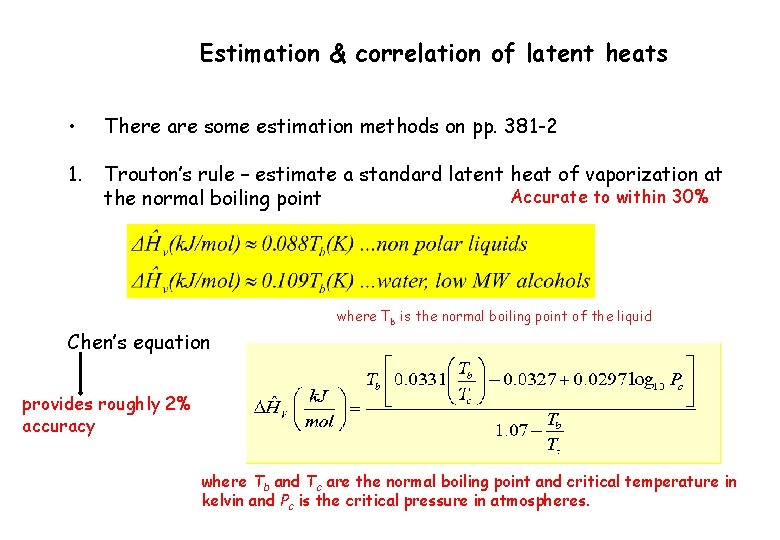 Estimation & correlation of latent heats
• There are some estimation methods on pp. 381-2
1. Trouton’s rule – estimate a standard latent heat of vaporization at
the normal boiling point
Accurate to within 30%
ΔĤv(kJ/mol) ≈ 0.088Tb(K) ...non polar liquids
ΔĤv(kJ/mol) ≈ 0.109Tb(K) ...water, low MW alcohols
where Tb is the normal boiling point of the liquid
Chen’s equation
provides roughly 2%
accuracy
ΔĤV (kJ/mol) = Tb[0.0331(Tb/Tc) – 0.0327 + 0.0297 log10 Pc] / (1.07 – Tb/Tc)
where Tb and Tc are the normal boiling point and critical temperature in
kelvin and Pc is the critical pressure in atmospheres.